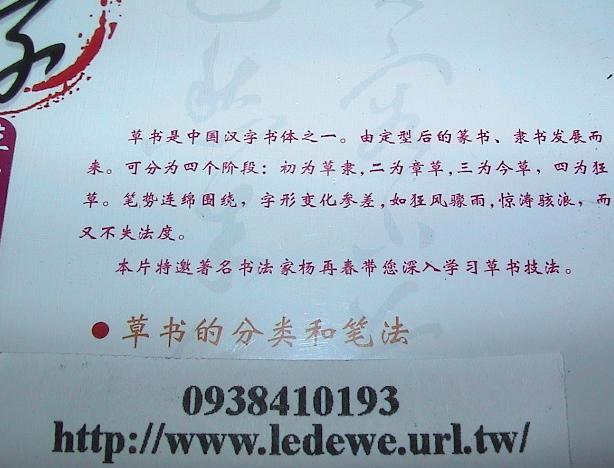 草书是中国汉字书体之一。由定型后的篆书、隶书发展而
来。可分为四个阶段：初为草隶，二为章草，三为今草，四为狂
草。笔势连绵围绕，字形变化参差，如狂风骤雨，惊涛骇浪，而
又不失法度。
本片特邀著名书法家杨再春带您深入学习草书技法。
●草书的分类和笔法
0938410193
http://www.ledewe.url.tw/